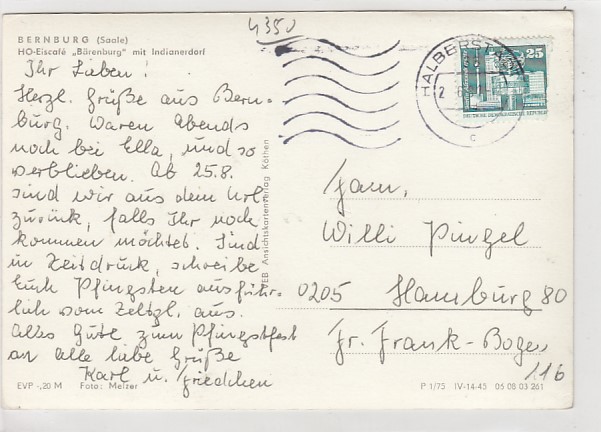 4350
BERNBURG (Saale)
HO-Eiscafé „Bärenburg" mit Indianerdorf
Ihr Lieben!
Herzl. Grüße aus Bern-
burg. Waren Abends
noch bei Ella, und so
verblieben. Ab 25.8.
sind wir aus dem Url.
zurück, falls Ihr noch
kommen möchtet. Sind
in Zeitdruck, schreibe
Euch Pfingsten ausführ-
lich vom Zeltpl. aus.
Alles Gute zum Pfingstfest
an alle liebe Grüße
Karl u. Friedchen
EVP -,20 M Foto: Melzer
VEB Ansichtskartenverlag Köthen
HALBERSTADT
c
25
DEUTSCHE DEMOKRATISCHE REPUBLIK
Fam.
Willi Pinzel
0205 Hamburg 80
Gr. Frank-Bogen
11b
P 1/75 IV-14-45 05 08 03 261